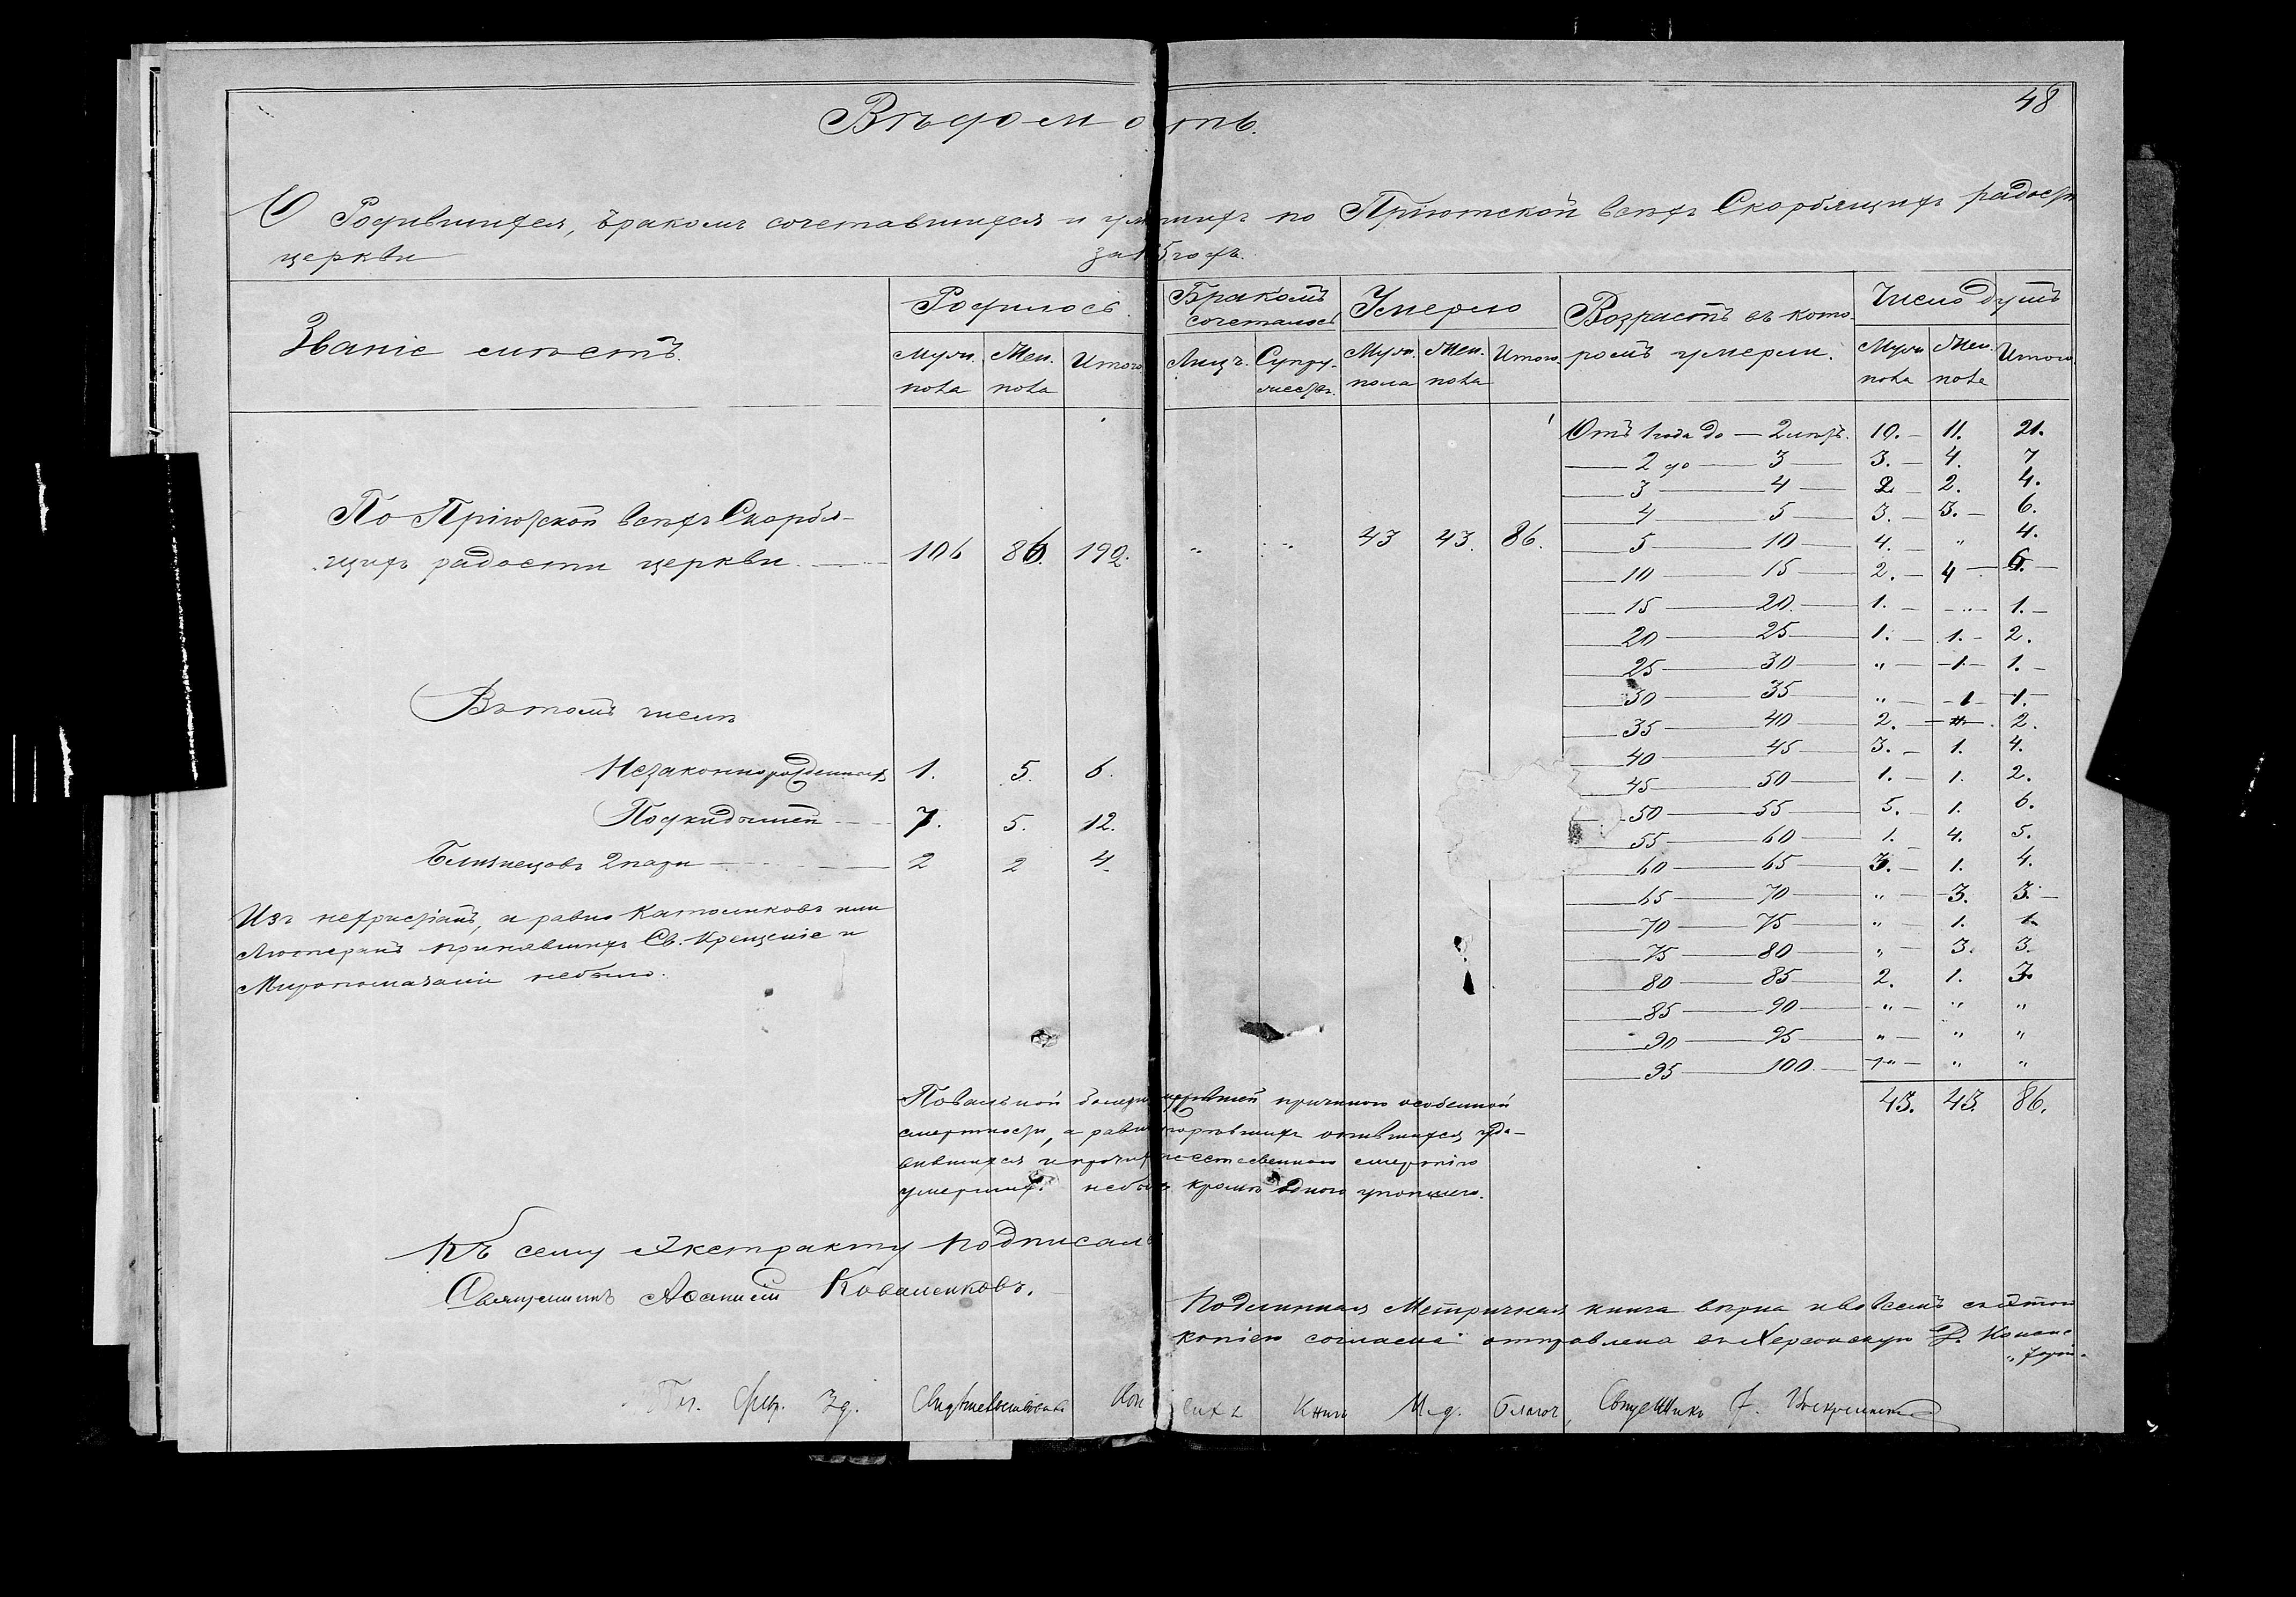 48
Вѣдомость.
О Родившихся, бракомъ сочетавшихся и умершихъ по Пріютской всѣхъ Скорбящихъ радости
церкви за 5 годъ.
Званіе мѣстъ.
Родилось.
Муж. пола
Жен. пола
Итого
Бракомъ сочеталось
Лицъ.
Супружествъ.
Умерло
Муж. пола
Жен. пола
Итого
Возрастъ въ которомъ умерли.
Число душъ
Муж. пола
Жен. пола
Итого
По Пріютской всѣхъ Скорбя-
щихъ радости церкви. 106 86. 192. „ „ 43 43. 86.
Въ томъ числѣ
Незаконнорожденныхъ 1. 5. 6.
Подкидышей 7. 5. 12.
Близнецовъ 2 пары 2 2 4.
Изъ нехристіанъ, а равно Католиковъ или
Лютеранъ принявшихъ Св. Крещеніе и
Мѵропомазаніе небыло.
Отъ 1 года до — 2 лѣтъ. 10. — 11. 21.
2 до — 3 — 3. — 4. 7
3 — 4 — 2 — 2. 4.
4 — 5 — 3. — 3. — 6.
5 — 10 — 4. — „ 4.
10 — 15 — 2. — 4 — 6. —
15 — 20. — 1. — „ 1. —
20 — 25 — 1. — 1. — 2.
25 — 30 — „ — 1 — 1. —
30 — 35 — „ — 1 — 1. —
35 — 40 — 2. — „ — 2.
40 — 45 — 3. — 1. 4.
45 — 50 — 1. — 1. 2.
50 — 55 — 5. — 1. 6.
55 — 60 — 1. — 4. 5.
60 — 65 — 3. — 1. 4.
65 — 70 — „ — 3. 3. —
70 — 75 — „ — 1. 1.
75 — 80 — „ — 3. 3.
80 — 85 — 2. 1. 3.
85 — 90 — „ — „ „
90 — 95 — „ — „ „
95 — 100. — „ — „ „
43. 43. 86.
Повальной болезни причиною особенной
смертности, а равно опившихся уда-
вившихся и прочих неестественною смертію
умершихъ небыло кромѣ одного утопшаго.
Къ сему Экстракту подписалъ
Священникъ Аѳанасій Коваленковъ.
Подлинная Метрическая книга вѣрна и во всемъ съ этою
копіею согласна отправлена въ Херсонскую Д. Консис-
„торію.
Свидѣтельствовалъ сихъ Книгъ М. д. благоч. Священникъ